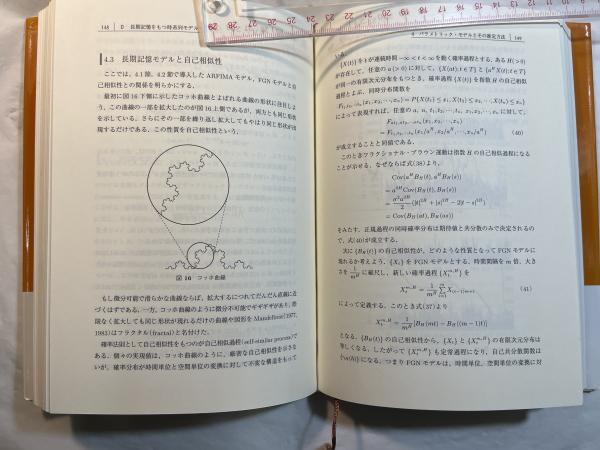 148 II 長期記憶をもつ時系列モデル
4.3 長期記憶モデルと自己相似性
ここでは，4.1節，4.2節で導入したARFIMAモデル，FGNモデルと自
己相似性との関係を明らかにする．
最初に図16下側に示したコッホ曲線とよばれる曲線の形状に注目しよ
う．この曲線の一部を拡大したのが図16上側であるが，両方とも同じ形状
を示している．さらにその一部を繰り返し拡大してもやはり同じ形状が出
現するだけである．この性質を自己相似性という．
図16 コッホ曲線
もし微分可能で滑らかな曲線ならば，拡大するにつれてだんだん直線に近
づくはずである．一方，コッホ曲線のように微分不可能でギザギザがあり，際
限なく拡大しても同じ形状が現れるだけの曲線や図形をMandelbrot(1977,
1983)はフラクタル(fractal)と名付けた．
確率法則として自己相似性をもつのが自己相似過程(self-similar process)で
ある．個々の実現値は，コッホ曲線のように，厳密な自己相似性を示さな
いが，確率分布が時間単位と空間単位の変換に対して不変な構造をもって
4 パラメトリック・モデルとその推定方法 149
いる．
{X(t)}をtが連続時間 −∞<t<∞ を動く確率過程とする．あるH(>0)
が存在して，任意のa(>0)に対して，{X(at);t∈T}と{a^H X(t);t∈T}
が同一の有限次元分布をもつとき，確率過程{X(t)}を指数Hの自己相似
過程とよぶ．同時分布関数を
F_{t1,t2,…,tn}(x1,x2,…,xn) = P(X(t1)≤x1, X(t2)≤x2,…,X(tn)≤xn)
によって表現すれば，任意のa, n, t1,t2,…,tn, x1,x2,…,xnに対する，
F_{at1,at2,…,atn}(x1,x2,…,xn)
= F_{t1,t2,…,tn}(x1/a^H, x2/a^H,…,xn/a^H) (40)
が成立することと同値である．
このときフラクショナル・ブラウン運動は指数Hの自己相似過程になる
ことが示せる．なぜならば式(38)より，
Cov(a^H B_H(t), a^H B_H(s))
= a^{2H} Cov(B_H(t), B_H(s))
= a^{2H}σ²/2 (|t|^{2H} + |s|^{2H} − |t − s|^{2H})
= Cov(B_H(at), B_H(as))
をみたす．正規過程の同時確率分布は期待値と共分散のみで決定されるの
で，式(40)が成立する．
次に{B_H(t)}の自己相似性が，どのような性質となってFGNモデルに
現れるか考えよう．{X_t}をFGNモデルとする．時間間隔をm倍，大き
さを1/m^Hに縮尺し，新しい確率過程{X_t^{m,H}}を
X_t^{m,H} = 1/m^H Σ_{i=1}^m X_{(t−1)m+i} (41)
によって定義する．このとき式(37)より
X_t^{m,H} = 1/m^H [B_H(mt) − B_H((m − 1)t)]
となる．{B_H(t)}の自己相似性から，{X_t}と{X_t^{m,H}}の有限次元分布は
等しくなる．したがって{X_t^{m,H}}も定常過程になり，自己共分散関数は
{γ(h)}になる．つまりFGNモデルは，時間単位，空間単位の変換に対